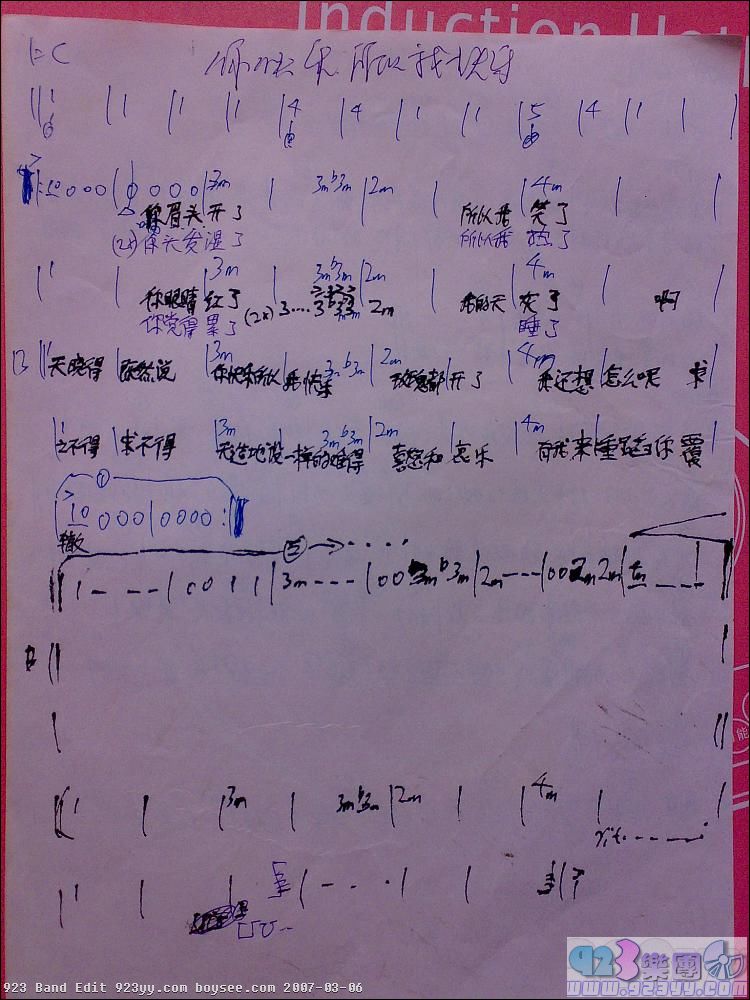 Induction Hot
1=C 你快乐所以我快乐
|| 1 | 1 | 1 | 1 | 4 | 4 | 1 | 1 | 5 | 4 | 1 | | |
||: 10 0 0 0 | 0 0 0 0 | 3m | 3m b3m | 2m | | 4m | |
你眉头开了 所以我 笑了
(2x) 你头发湿了 所以我 热了
| 1 | | 3m | 3m b3m | 2m | | 4m | |
你眼睛红了 (2x) 3.... 3 b3 2m 我的天 灰了 啊
你觉得累了 睡了
B || 天晓得 | 既然说 | 3m 你快乐所以 | 我快乐 3m b3m | 2m 玫瑰都 | 开了 | 4m 我还想 | 怎么呢 求 |
| 1 之不得 | 求不得 | 3m 天造地设 | 一样的难得 3m b3m | 2m 喜怒和 | 哀乐 | 4m 有我来 | 重蹈你 覆 |
①
| 10 0 0 0 | 0 0 0 0 :||
辙
② → ....
|| 1 - - - | 0 0 1 1 | 3m - - - | 0 0 3m b3m | 2m - - - | 0 0 2m 2m |
B ||
| ||
|| 1 | | 3m | 3m b3m | 2m | | 4m | |
rit.
| 1 | | | - - - | | |
能
923樂團
www.923yy.com
923 Band Edit 923yy.com boysee.com 2007-03-06